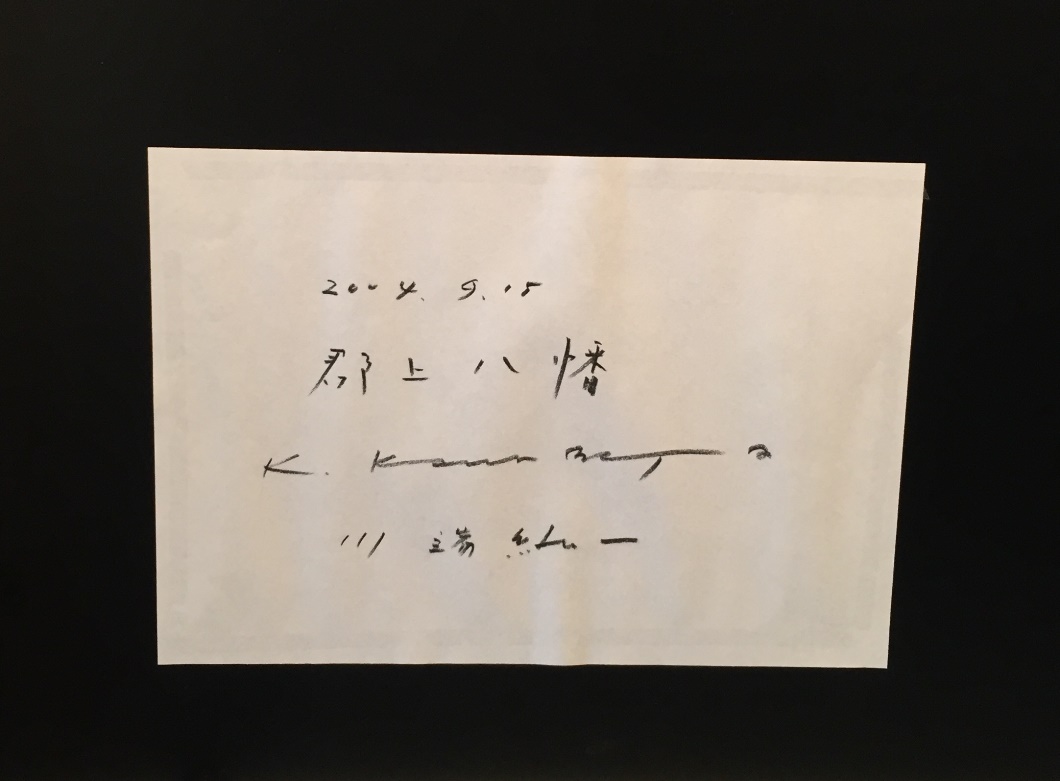 2004. 9. 15
郡上八幡
K. Kawabata
川端紘一